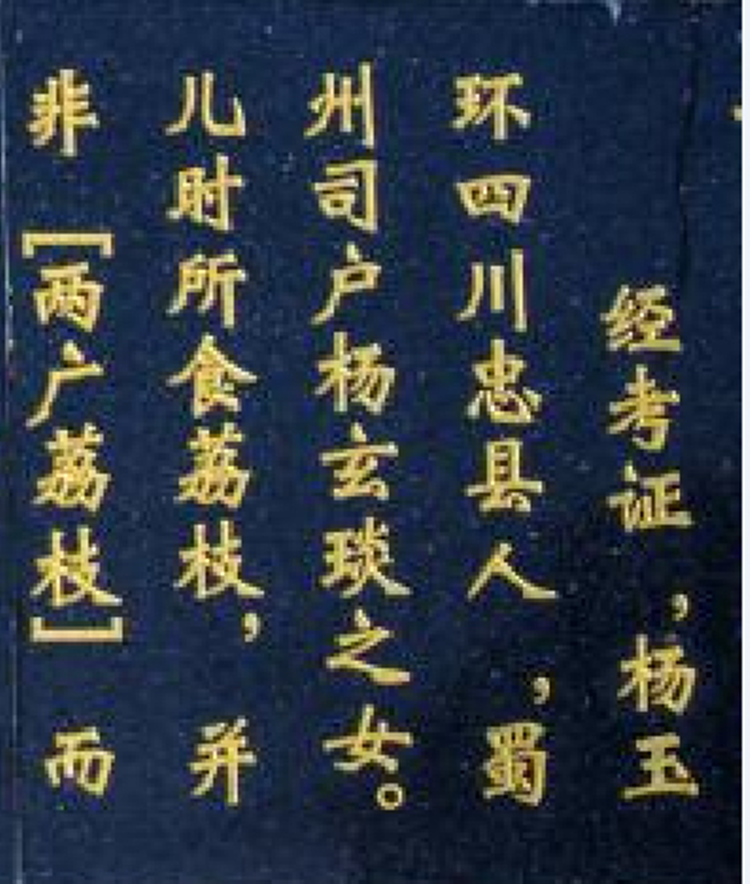 经考证，杨玉
环四川忠县人，蜀
州司户杨玄琰之女。
儿时所食荔枝，并
非［两广荔枝］而